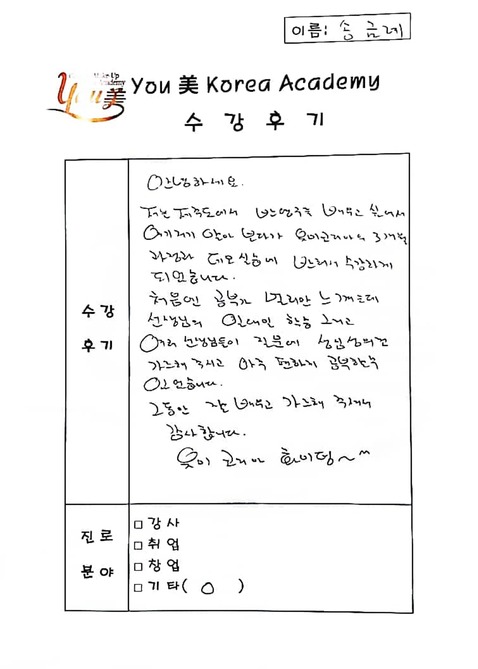 이름: 송금례
You美 Make-Up Academy
You 美 Korea Academy
수 강 후 기
수 강
후 기
안녕하세요.
저는 제주도에서 반영구를 배우고 싶어서
여기저기 알아 보다가 유미코리아의 3개월
과정과 데모실습에 반해서 수강하게
되었습니다.
처음엔 공부가 멀리만 느껴졌는데
선생님의 일대일 학습 그리고
여러 선생님들이 질문에 성심성의껏
가르쳐 주시고 아주 편하게 공부할수
있었습니다.
그동안 잘 배우고 가르쳐 주셔서
감사합니다.
유미 코리아 화이팅~^^
진 로
분 야
□ 강 사
□ 취 업
□ 창 업
□ 기 타( ○ )